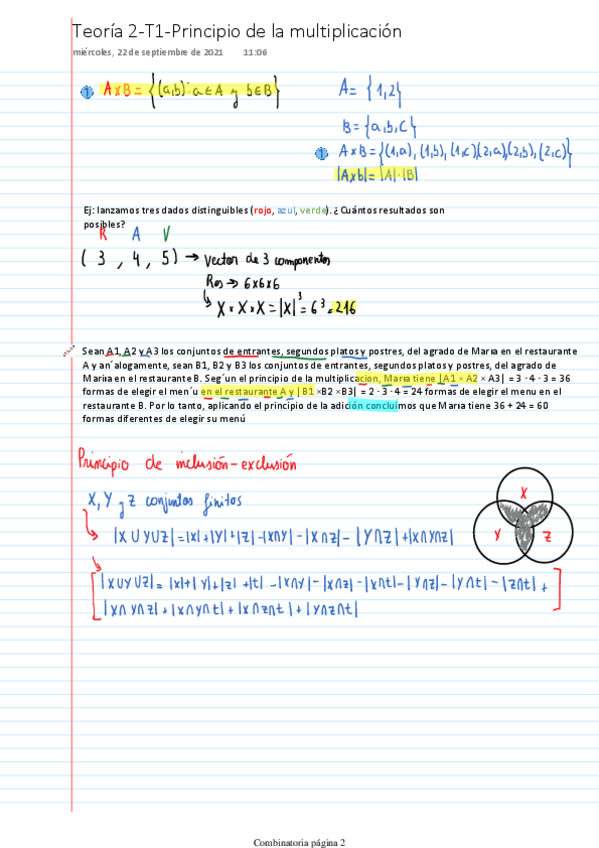 Teoría 2-T1-Principio de la multiplicación
miércoles, 22 de septiembre de 2021 11:06
1 A x B = {(a,b): a ∈ A y b ∈ B}
A = {1,2}
B = {a,b,c}
1 A x B = {(1,a), (1,b), (1,c), (2,a), (2,b), (2,c)}
|Axb| = |A|·|B|
Ej: lanzamos tres dados distinguibles (rojo, azul, verde). ¿ Cuántos resultados son
posibles?
R A V
( 3 , 4 , 5 ) → Vector de 3 componentes
Res → 6x6x6
X x X x X = |X|³ = 6³ = 216
Sean A1, A2 y A3 los conjuntos de entrantes, segundos platos y postres, del agrado de Marıa en el restaurante
A y an´alogamente, sean B1, B2 y B3 los conjuntos de entrantes, segundos platos y postres, del agrado de
Marıa en el restaurante B. Seg´un el principio de la multiplicacion, Marıa tiene |A1 × A2 × A3| = 3 · 4 · 3 = 36
formas de elegir el men´u en el restaurante A y | B1 ×B2 ×B3| = 2 · 3 · 4 = 24 formas de elegir el menu en el
restaurante B. Por lo tanto, aplicando el principio de la adición concluimos que Marıa tiene 36 + 24 = 60
formas diferentes de elegir su menú
Principio de inclusión-exclusión
X, Y y Z conjuntos finitos
|X U Y U Z| = |X| + |Y| + |Z| - |X∩Y| - |X∩Z| - |Y∩Z| + |X∩Y∩Z|
X
Y Z
|X U Y U Z| = |X| + |Y| + |Z| + |t| - |X∩Y| - |X∩Z| - |X∩t| - |Y∩Z| - |Y∩t| - |Z∩t| +
|X∩Y∩Z| + |X∩Y∩t| + |X∩Z∩t| + |Y∩Z∩t|
Combinatoria página 2